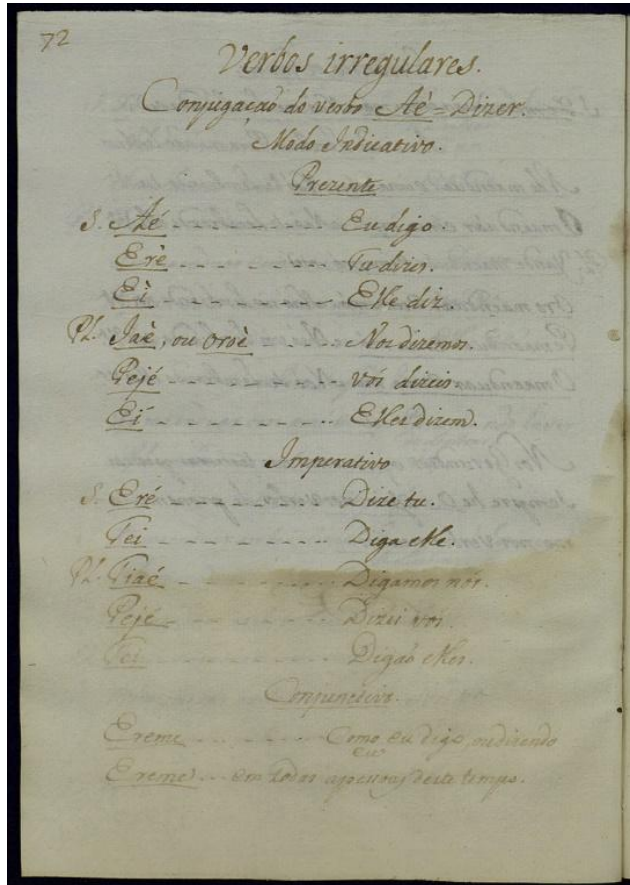 72
Verbos irregulares.
Conjugaçaõ do verbo Aè = Dizer.
Modo Indicativo.
Prezente
S. Aé Eu digo.
Erè - - - - - - - - Tu dizes.
Eì - - - - - - - - Elle diz.
Pl. Jaè, ou oroè Nos dizemos.
Pejé - - - - - - - - vós dizeis.
Eí - - - - - - - - Elles dizem.
Imperativo
S. Eré - - - - - - - - Dize tu.
Tei - - - - - - - - Diga elle.
Pl. Tiaé - - - - - - - - Digamos nós.
Pejé - - - - - - - - Dizei vós.
Tei - - - - - - - - Digaõ elles.
Conjunctivo.
Ereme - - - - - - - - Como eu digo, ou dizendo
eu
Ereme - - - em todas as pessoas deste tempo.